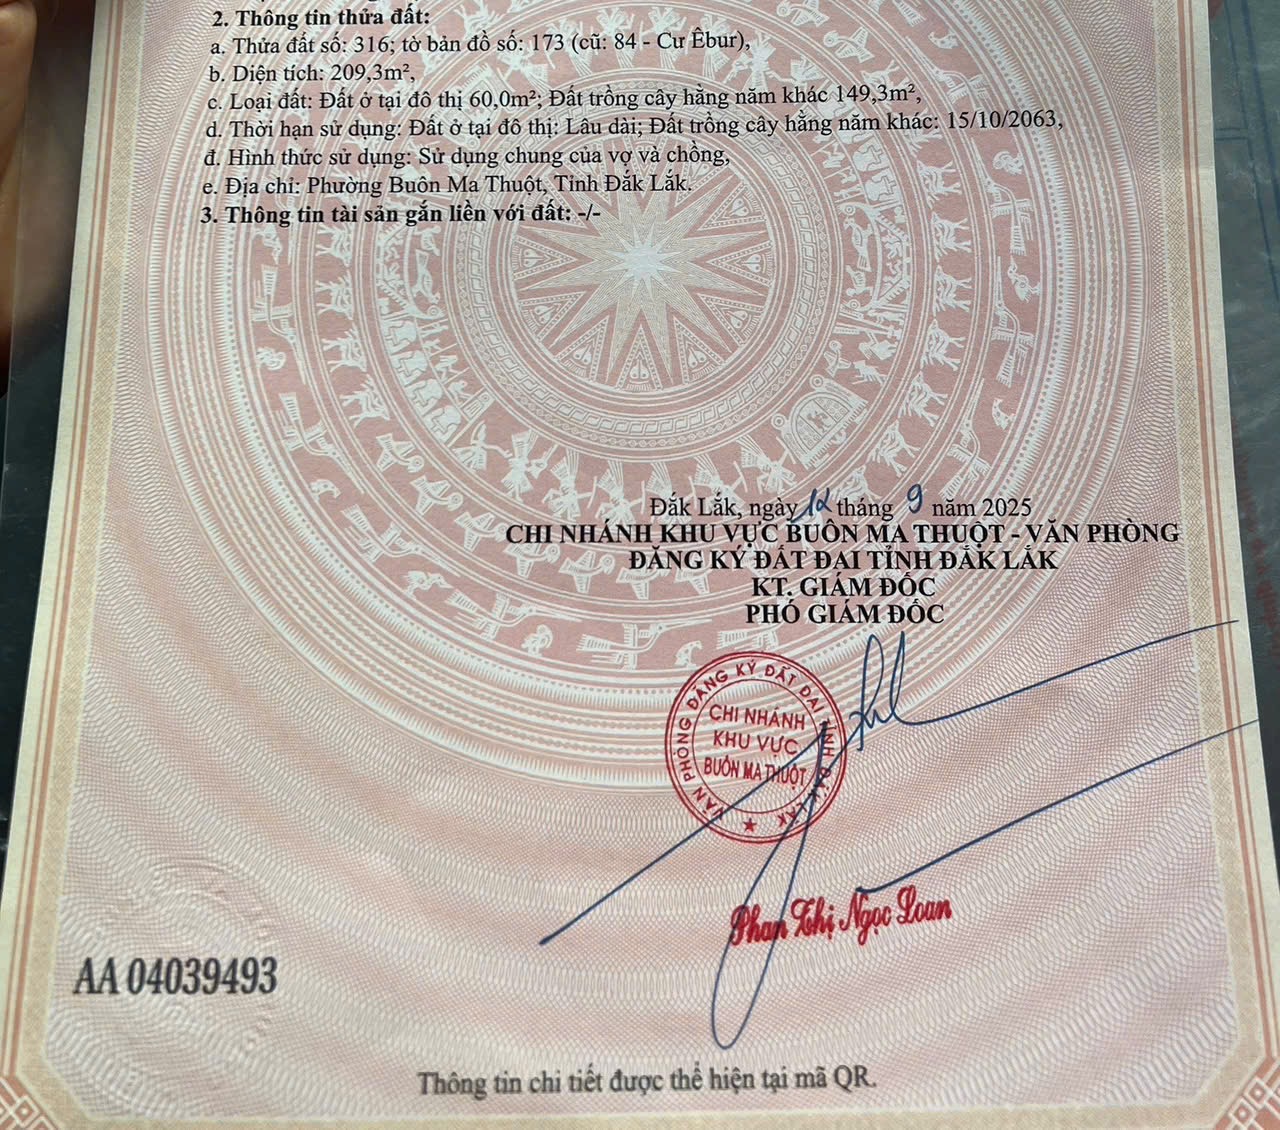 2. Thông tin thửa đất:
a. Thửa đất số: 316; tờ bản đồ số: 173 (cũ: 84 - Cư Êbur),
b. Diện tích: 209,3m²,
c. Loại đất: Đất ở tại đô thị 60,0m²; Đất trồng cây hằng năm khác 149,3m²,
d. Thời hạn sử dụng: Đất ở tại đô thị: Lâu dài; Đất trồng cây hằng năm khác: 15/10/2063,
đ. Hình thức sử dụng: Sử dụng chung của vợ và chồng,
e. Địa chỉ: Phường Buôn Ma Thuột, Tỉnh Đắk Lắk.
3. Thông tin tài sản gắn liền với đất: -/-
Đắk Lắk, ngày 12 tháng 9 năm 2025
CHI NHÁNH KHU VỰC BUÔN MA THUỘT - VĂN PHÒNG
ĐĂNG KÝ ĐẤT ĐAI TỈNH ĐẮK LẮK
KT. GIÁM ĐỐC
PHÓ GIÁM ĐỐC
VĂN PHÒNG ĐĂNG KÝ ĐẤT ĐAI TỈNH ĐẮK LẮK
CHI NHÁNH
KHU VỰC
BUÔN MA THUỘT
Phan Thị Ngọc Loan
AA 04039493
Thông tin chi tiết được thể hiện tại mã QR.